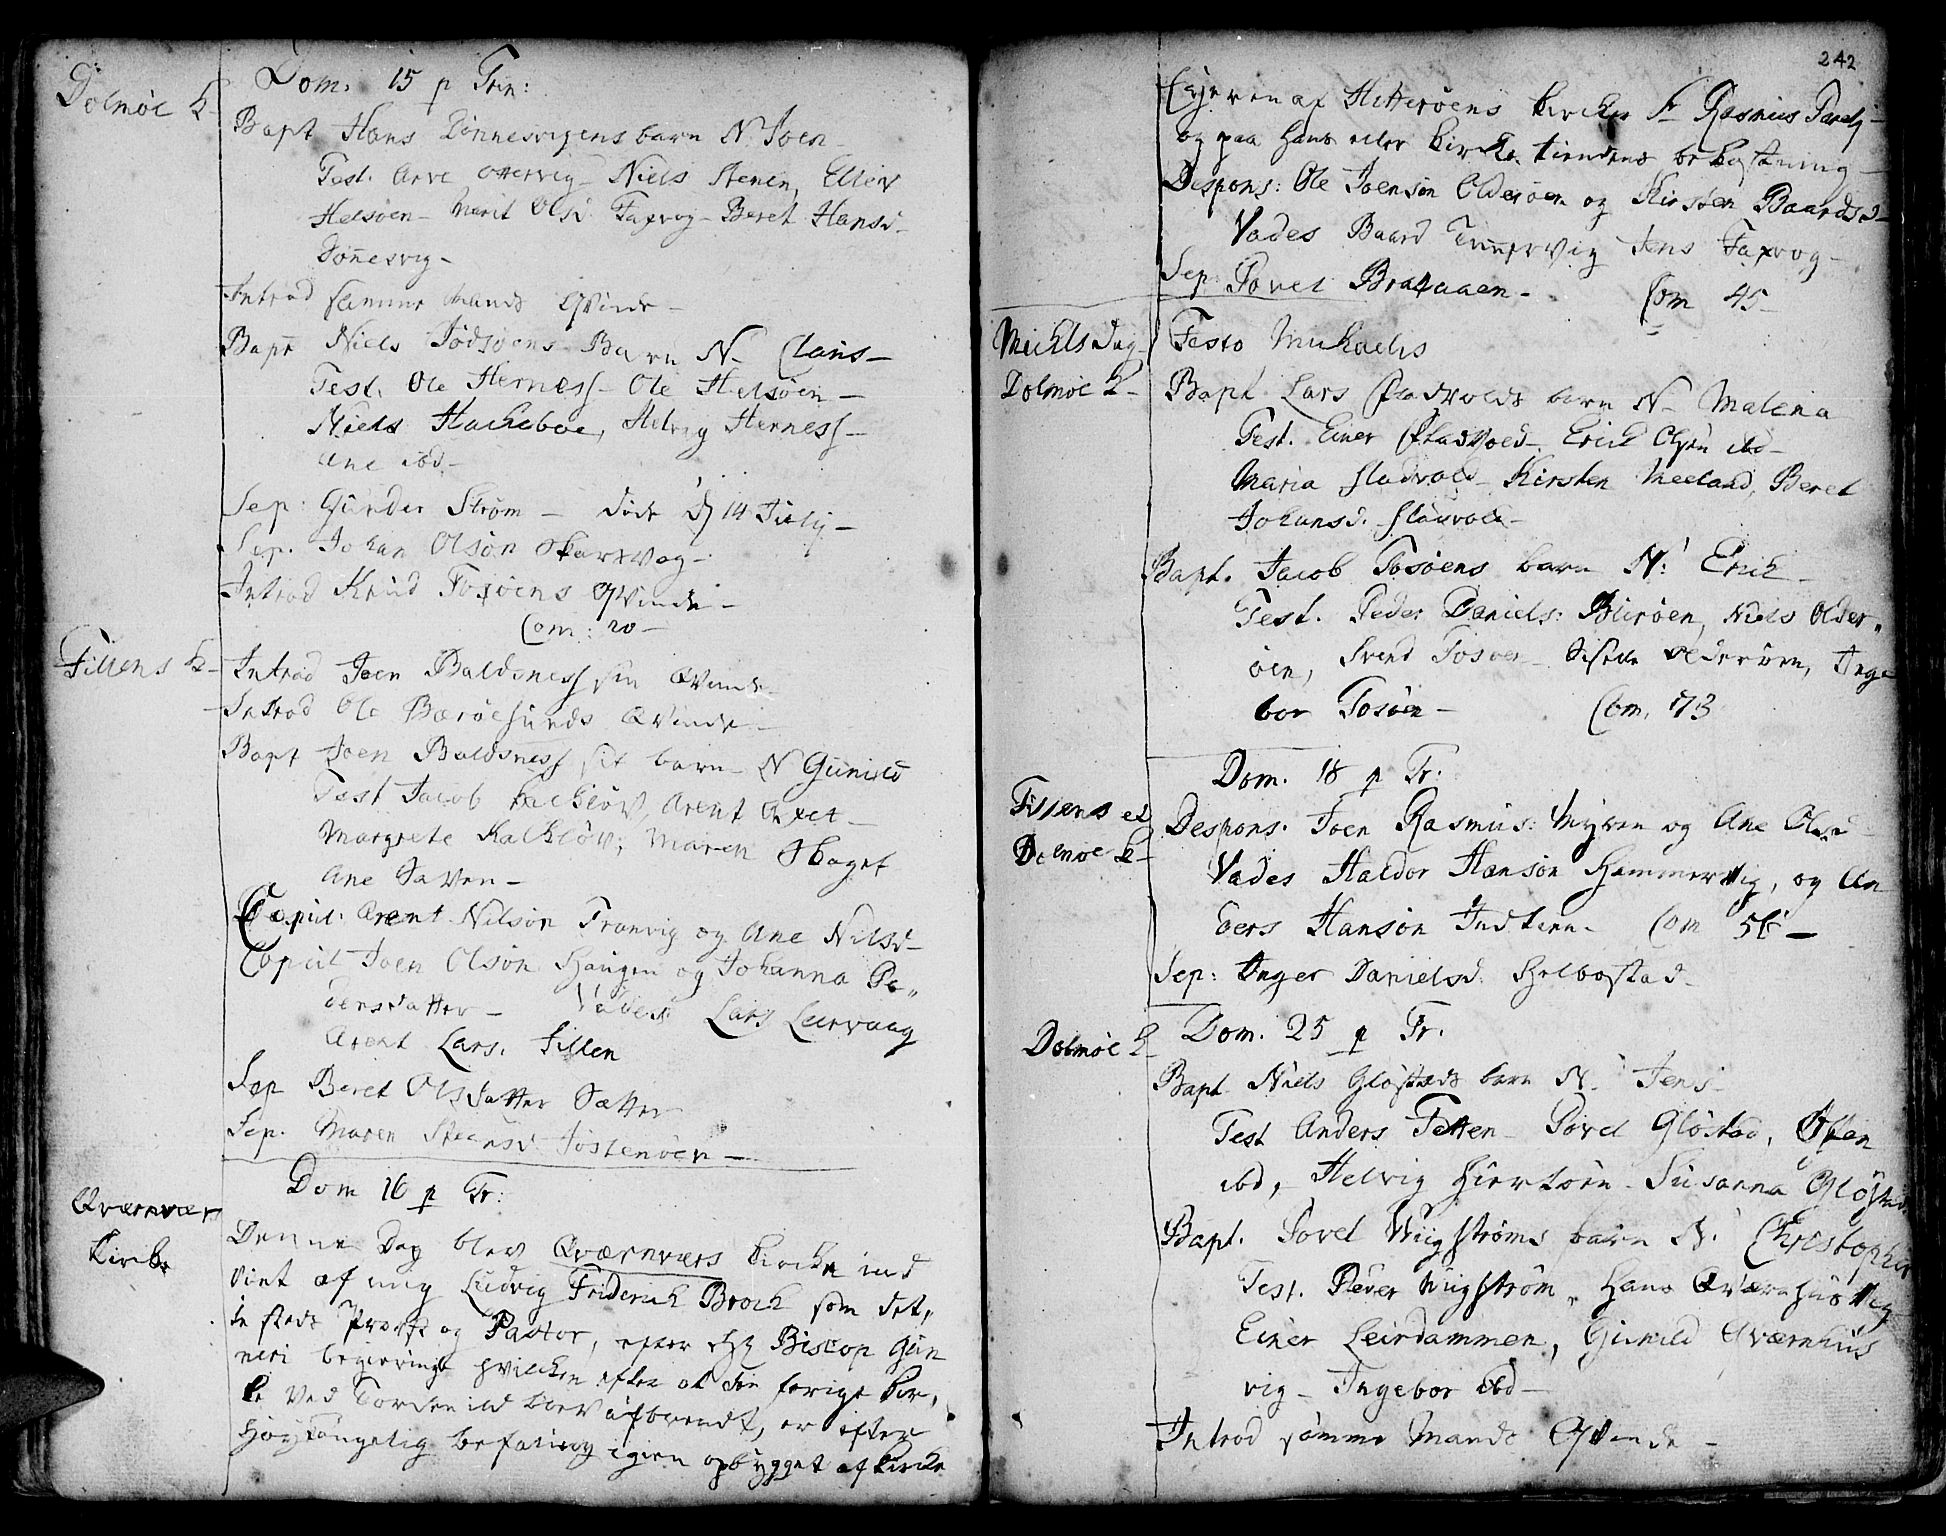 Dom. 15 p Trin:
Dolmøe K
Bapt Hans Dønnesvigens barn N. Joen
Test. Arve Ottervig Niels Stenen, Ellen
Helsøen Marit Olsd Faxvog Beret Hansd
Dønnesvig
Introd samme Mands Qvinde
Bapt Niels Jødsøens Barn N Claus
Test. Ole Herness Ole Helsøen
Niels Hacheboe, Helvig Herness
Ane ibd
Sep: Gunder Strøm døde d 14 July
Sep. Johan Olsøn Skarsvog
Introd Knud Foxøens Qvinde
Com: 20
Fillens K
Introd Joen Baldsness sin Qvinde
Introd Ole Barøesunds Qvinde
Bapt Joen Baldsness sit barn N Gunild
Test Jacob Kalkløv, Arent
Margrete Kalkløv, Maren Skaget
Ane Saven
Copul: Arent Nilsøn Tranvig og Ane Nilsd
Copul Joen Olsøn Haugen og Johanna Pe„
dersdatter Vades Lars Leervaag
Arent Lars. Fillen
Sep Beret Olsdatter Sætter
Sep. Maren Steensd Jøstenøen
Dom 16 p Tr:
Qværnvær
Kirke
Denne Dag blev Qværnværs Kirche ind
viet af mig Ludvig Friderich Broch som det,
te steds Provst og Pastor, efter Hr Bisçop Gun
neri begiering hvilcken efter at den forige Kir,
ke ved Tordenild blev afbrendt, er efter
Høy Kongelig befaling igien opbygget af Kirche
242
Eyeren af Hitterøens kircker Sr Rasmus
og paa hans eller kirke tiendens bekostning
Despons: Ole Joensøn Olderøen og Kirsten Baardsd
Vades Baard Jens Faxvog
Sep: Povel Com 45
Michls Dag
Festo Michaelis
Dolmøe K
Bapt Lars Stadvolds barn N Malena
Test. Einer Stadvold Erich Olsen ibd
Maria Stadvold Kirsten Meeland, Beret
Johansd. Stadvold
Bapt. Jacob Tosøens barn N: Erich
Test. Peder Daniels: Burøen, Niels Older„
øen, Svend Tosøen Sisele Olderøen, Inge
bor Tosøen Com. 73
Dom. 18 p Tr:
Fillens et
Dolmøe K
Despons. Joen Rasmus: Myren og Ane Olsd
Vades Haldor Hansøn Hammervig, og An
ders Hansøn Com 56
Sep: Inger Danielsd. Helbostad
Dolmøe K
Dom. 25 p Tr.
Bapt Niels Gløstads barn N. Jens
Test Anders Fetten Povel Gløstad,
ibd, Helvig Susanna Gløstad
Bapt. Povel Wiigstrøms barn N. Christopher
Test. Peder Wiigstrøm, Hans Qværnhusvig
Einer Leirdammen, Gunild Qværnhus
vig Ingebor ibd
Introd samme Mands Qvinde